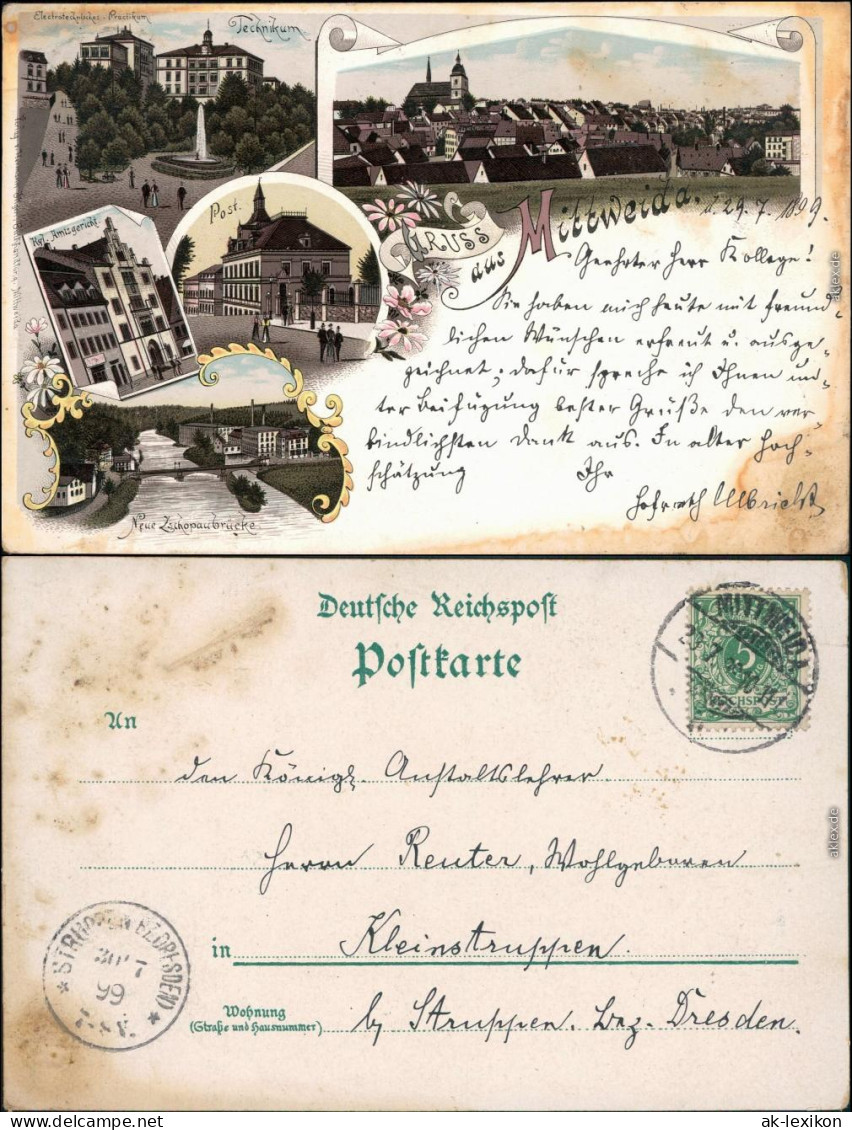 Electrotechnisches-Praktikum
Technikum
Kgl. Amtsgericht
Post.
GRUSS
aus
Mittweida.
d. 29. 7. 1899.
Geehrter Herr Kollege!
Sie haben mich heute mit freund-
lichen Wünschen erfreut u. ausge-
zeichnet; dafür spreche ich Ihnen un-
ter Beifügung bester Grüße den ver-
bindlichsten Dank aus. In alter Hoch-
schätzung Ihr
Hofrath Ulbricht
Neue Zschopaubrücke
aklex.de
Deutsche Reichspost
Postkarte
MITTWEIDA
An
den Königl. Anstaltslehrer
Herrn Reuter, Wohlgeboren
in Kleinstruppen
Wohnung
(Straße und Hausnummer)
by Struppen. Bez. Dresden.
STRUPPEN (BZ. DRESDEN)
30 7
99
7-8 V.
aklex.de
ak-lexikon